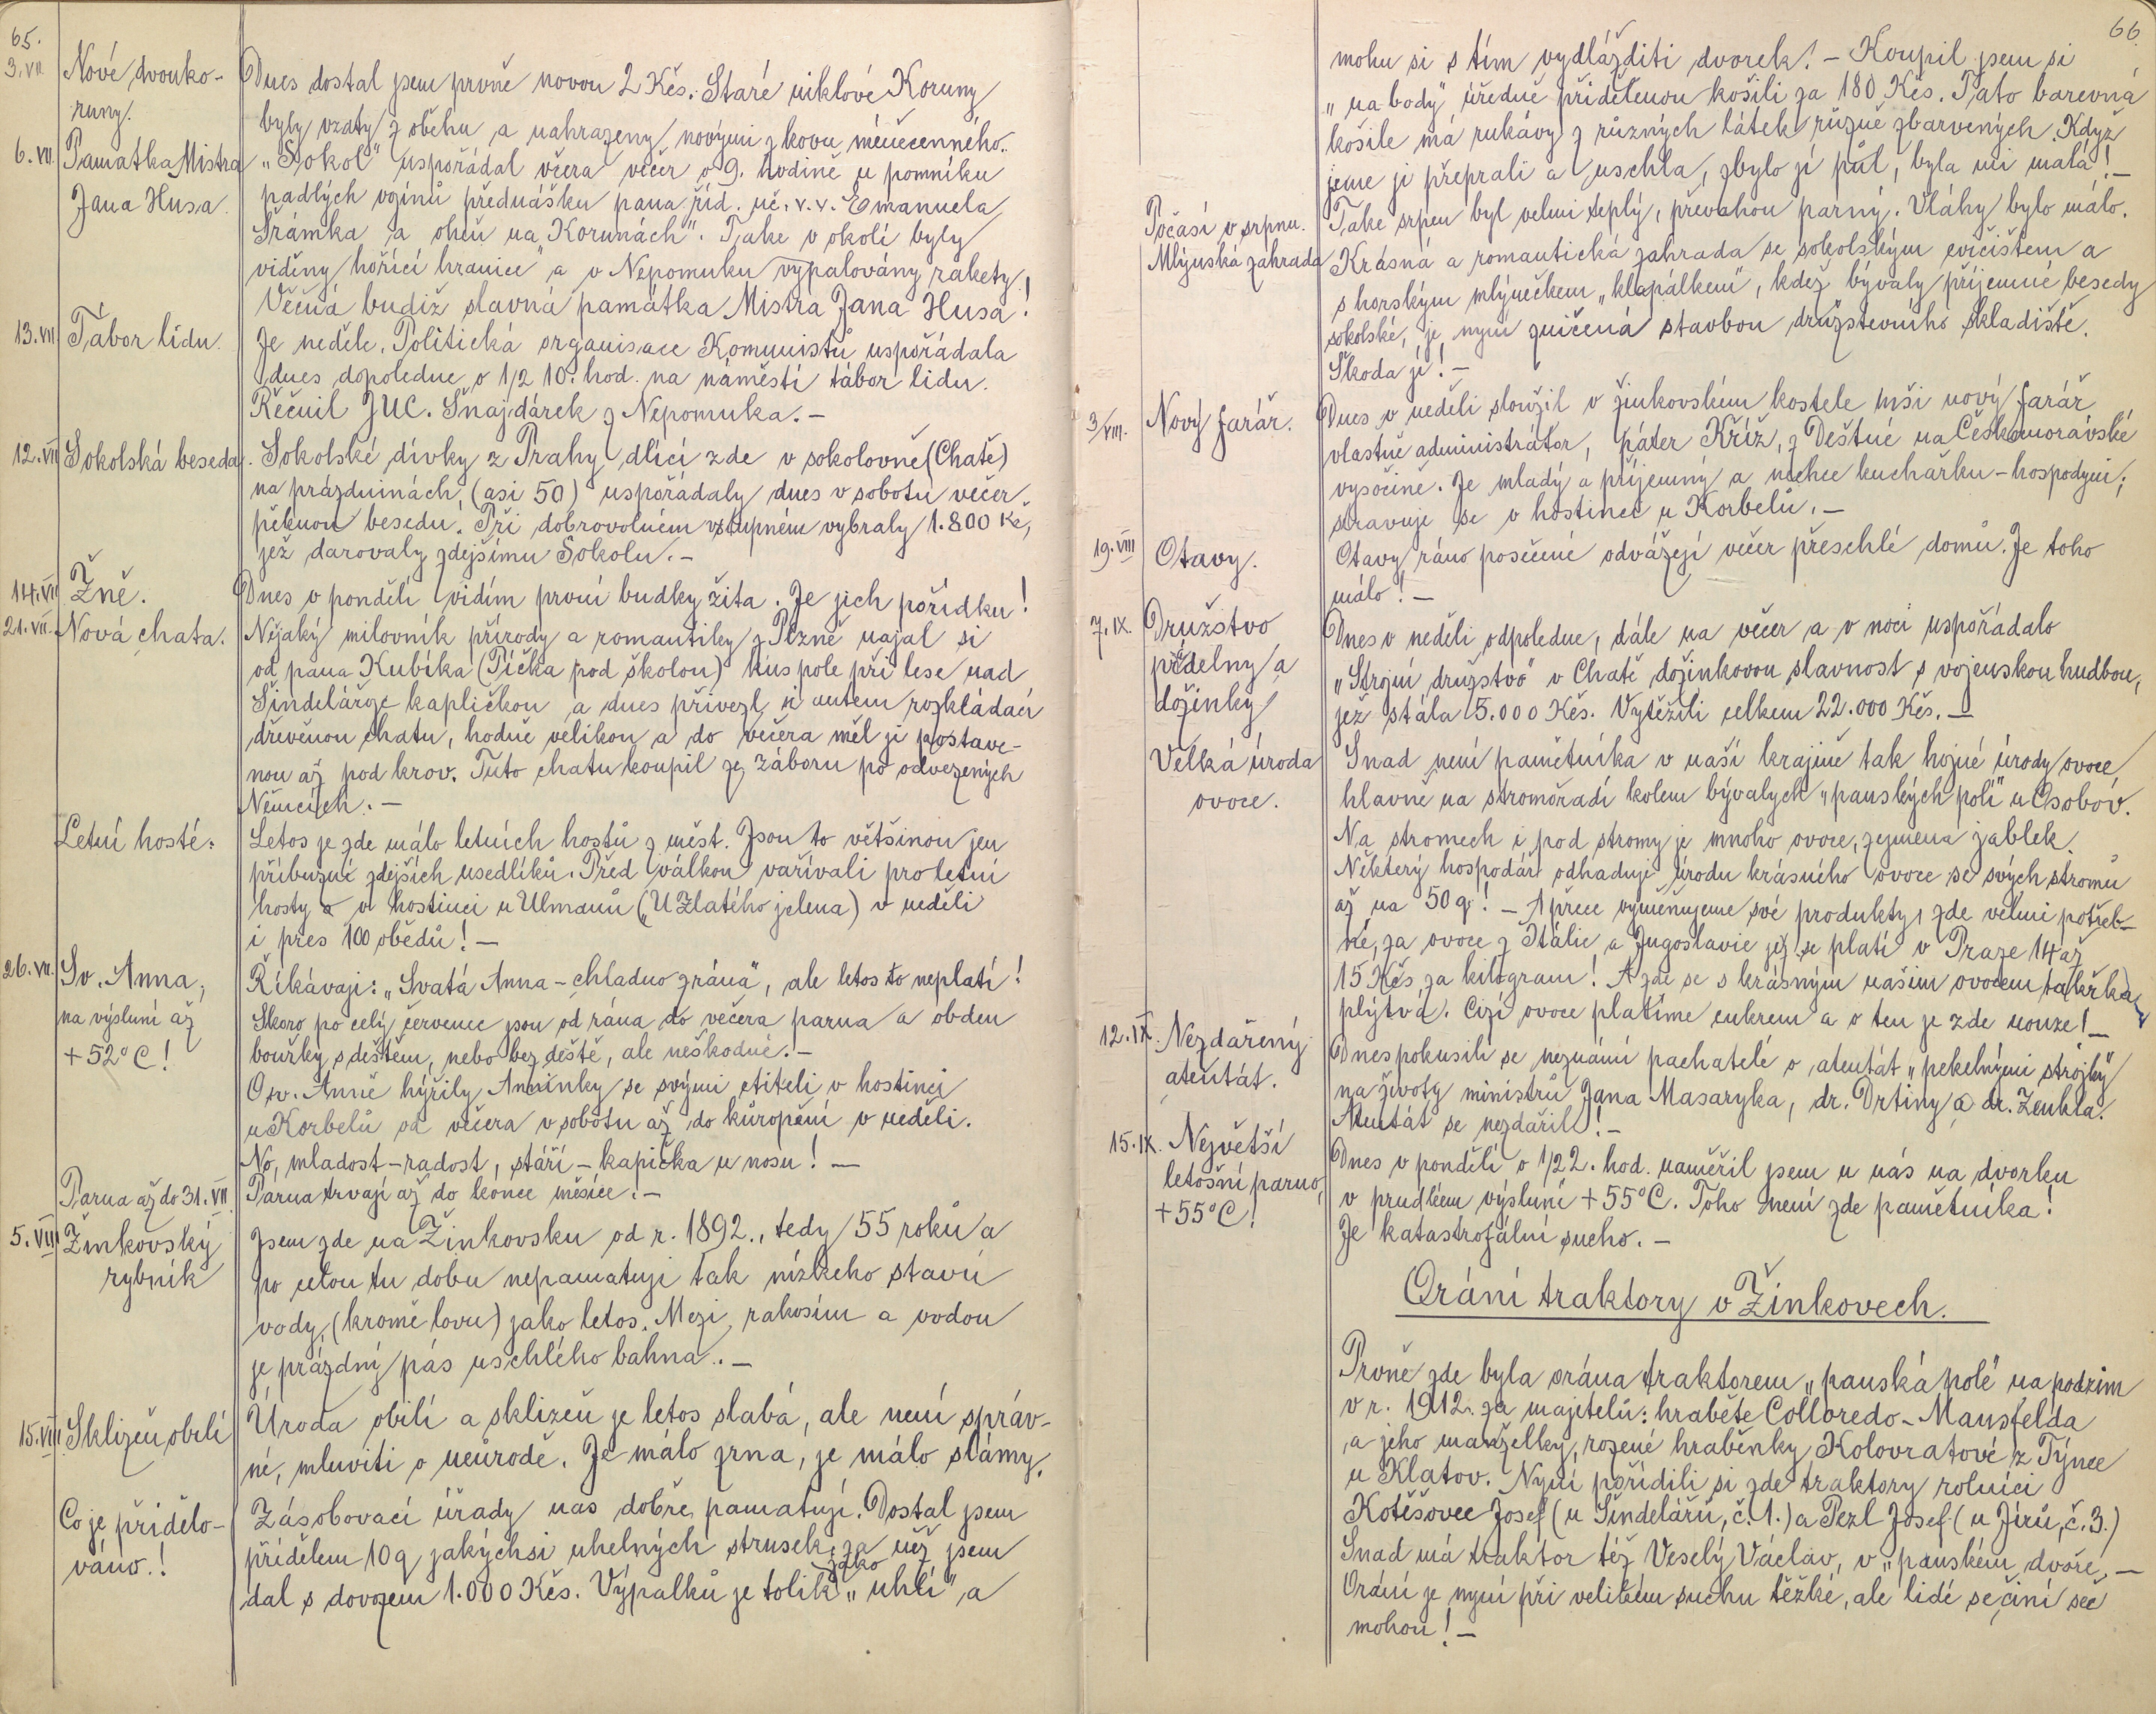 65.
3.VII. Nové dvouko-
runy.
Dnes dostal jsem prvně novou 2 Kčs. Staré niklové Koruny
byly vzaty z oběhu a nahrazeny novými z kovu méněcenného.
6.VII. Památka Mistra
Jana Husa.
„Sokol" uspořádal včera večer o 9. hodině u pomníku
padlých vojínů přednášku pana říd. uč. v.v. Emanuela
Šrámka a oheň na „Korunách". Take v okolí byly
viděny hořící hranice a v Nepomuku vypalovány rakety.
Věčná budiž slavná památka Mistra Jana Husa!
13.VII. Tábor lidu.
Je neděle. Politická organisace Komunistů uspořádala
dnes dopoledne o 1/2 10. hod. na náměstí tábor lidu.
Řečnil JUC. Šnajdárek z Nepomuka.-
12.VII. Sokolská beseda.
Sokolské dívky z Prahy dlící zde v sokolovně (Chatě)
na prázdninách, (asi 50) uspořádaly dnes v sobotu večer
pěknou besedu. Při dobrovolném vstupném vybraly 1.800 Kč,
jež darovaly zdejšímu Sokolu.-
14.VII. Žně.
Dnes v pondělí vidím první budky žita. Je jich pořídku!
21.VII. Nová chata.
Nějaký milovník přírody a romantiky z Plzně najal si
od pana Kubíka (Píčka pod školou) kus pole při lese nad
Šindelářze kapličkou a dnes přivezl si autem rozkládací
dřevěnou chatu, hodně velikou a do večera měl ji postave-
nou až pod krov. Tuto chatu koupil ze záboru po odvezených
Němcích.-
Letní hosté:
Letos je zde málo letních hostů z měst. Jsou to většinou jen
příbuzní zdejších usedlíků. Před válkou vařívali pro letní
hosty v hostinci u Ulmanů („U Zlatého jelena) v neděli
i pres 100 obědů!-
26.VII. Sv. Anna,
na výsluní až
+52°C!
Říkávají: „Svatá Anna - chladno zrána", ale letos to neplatí!
Skoro po celý červenec jsou od rána do večera parna a obden
bouřky s deštěm, nebo bez deště, ale neškodné.-
O sv. Anně hýřily Anninky se svými ctiteli v hostinci
u Korbelů od večera v sobotu až do kuropění v neděli.
No, mladost-radost, stáří-kapička u nosu!-
Parna až do 31.VII.
Parna trvají až do konce měsíce.-
5.VIII Žinkovský
rybník
Jsem zde na Žinkovsku od r. 1892., tedy 55 roků a
po celou tu dobu nepamatuji tak nízkeho stavu
vody, (kromě lovu) jako letos. Mezi rakosím a vodou
je prázdný pás uschlého bahna.-
15.VIII Sklizeň obilí
Úroda obilí a sklizeň je letos slabá, ale není správ-
né, mluviti o neúrodě. Je málo zrna, je málo slámy.
Co je přidělo-
váno.!
Zásobovací úřady nas dobře pamatují. Dostal jsem
přídělem 10q jakýchsi uhelných strusek, za něž jsem
dal s dovozem 1.000 Kčs. Výpalků je tolik jako „uhlí", a
66.
mohu si s tím vydlážditi dvorek! - Koupil jsem si
„na body" úředně přidělenou košili za 180 Kčs. Tato barevná
košile má rukávy z různých látek různě zbarvených. Když
jsme ji přeprali a uschla, zbylo jí půl, byla mi malá!-
Počasí v srpnu.
Take srpen byl velmi teplý, převahou parný. Vláhy bylo málo.
Mlýnská zahrada
Krásná a romantická zahrada se sokolským cvičištem a
s horským mlýnečkem „klapálkem", kdež bývaly příjemné besedy
sokolské, je nyní zničená stavbou družstevního skladiště.
Škoda jí!-
3/VIII. Nový farář.
Dnes v neděli sloužil v žinkovském kostele mši nový farář
vlastně administrátor, páter Kříž, z Deštné na Českomoravské
vysočině. Je mladý a příjemný a nechce kuchařku-hospodyni;
stravuje se v hostinci u Korbelů.-
19.VIII Otavy.
Otavy ráno posečené odvážejí večer přeschlé domů. Je toho
málo!-
7.IX. Družstvo
přdelny a
dožinky
Dnes v neděli odpoledne, dále na večer a v noci uspořádalo
„Strojní družstvo" v Chatě dožinkovou slavnost s vojenskou hudbou,
jež stála 5.000 Kčs. Vytěžili celkem 22.000 Kčs.-
Velká úroda
ovoce.
Snad není pamětníka v naší krajině tak hojné úrody ovoce
hlavně na stromořadí kolem bývalych „panských polí" u Osobov.
Na stromech i pod stromy je mnoho ovoce, zejmena jablek.
Některý hospodář odhaduje úrodu krásného ovoce se svých stromů
až na 50 q! - A přece vyměňujeme své produkty, zde velmi potřeb-
né, za ovoce z Itálie a Jugoslavie jež se platí v Praze 14 až
15 Kčs za kilogram! A zde se s krásným našim ovocem takřka
plýtvá. Cizí ovoce platíme cukrem a o ten je zde nouze!-
12.IX. Nezdařený
atentát.
Dnes pokusili se neznámí pachatelé o atentát „pekelnými strojky"
na životy ministrů Jana Masaryka, dr. Drtiny a dr. Zenkla.
Atentát se nezdařil!-
15.IX. Největší
letošní parno,
+55°C!
Dnes v pondělí o 1/2 2. hod. naměřil jsem u nás na dvorku
v prudkém výsluní +55°C. Toho není zde pamětníka!
Je katastrofální sucho.-
Orání traktory v Žinkovech.
Prvně zde byla orána traktorem „panská pole" na podzim
v r. 1912. za majetelů: hraběte Colloredo-Mansfelda
a jeho manželky, rozené hraběnky Kolovratové z Týnce
u Klatov. Nyní pořídili si zde traktory rolníci
Kotěšovec Josef (u Šindelářů, č. 1.) a Pezl Josef (u Jírů, č. 3.)
Snad má traktor též Veselý Václav, v „panském dvoře,-
Orání je nyní při velikém suchu těžké, ale lidé se činí seč
mohou!-